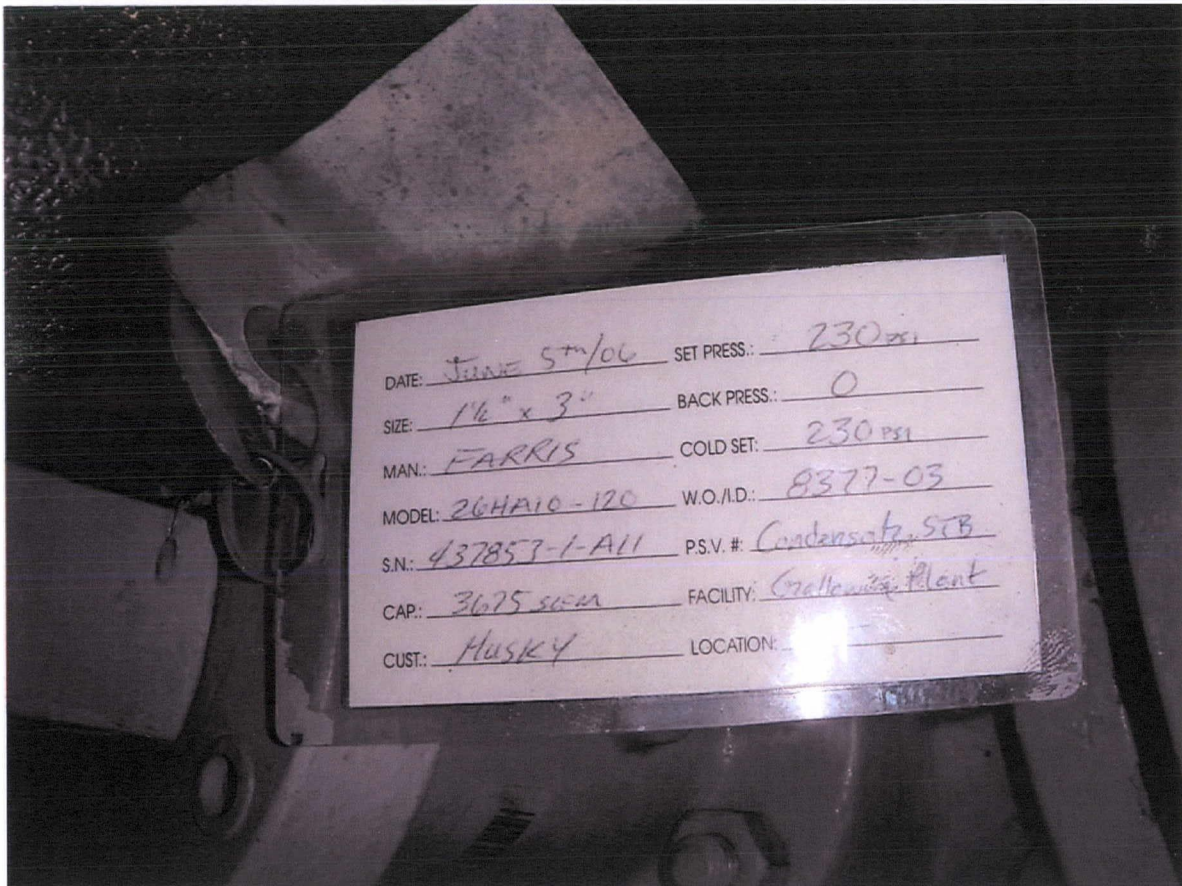 DATE: JUNE 5TH/06 SET PRESS.: 230 PSI
SIZE: 1½" x 3" BACK PRESS.: 0
MAN.: FARRIS COLD SET: 230 PSI
MODEL: 26HA10-120 W.O./I.D.: 8377-03
S.N.: 437853-1-A11 P.S.V. #: Condensate STB
CAP.: 3675 SCFM FACILITY: Plant
CUST.: HUSKY LOCATION: